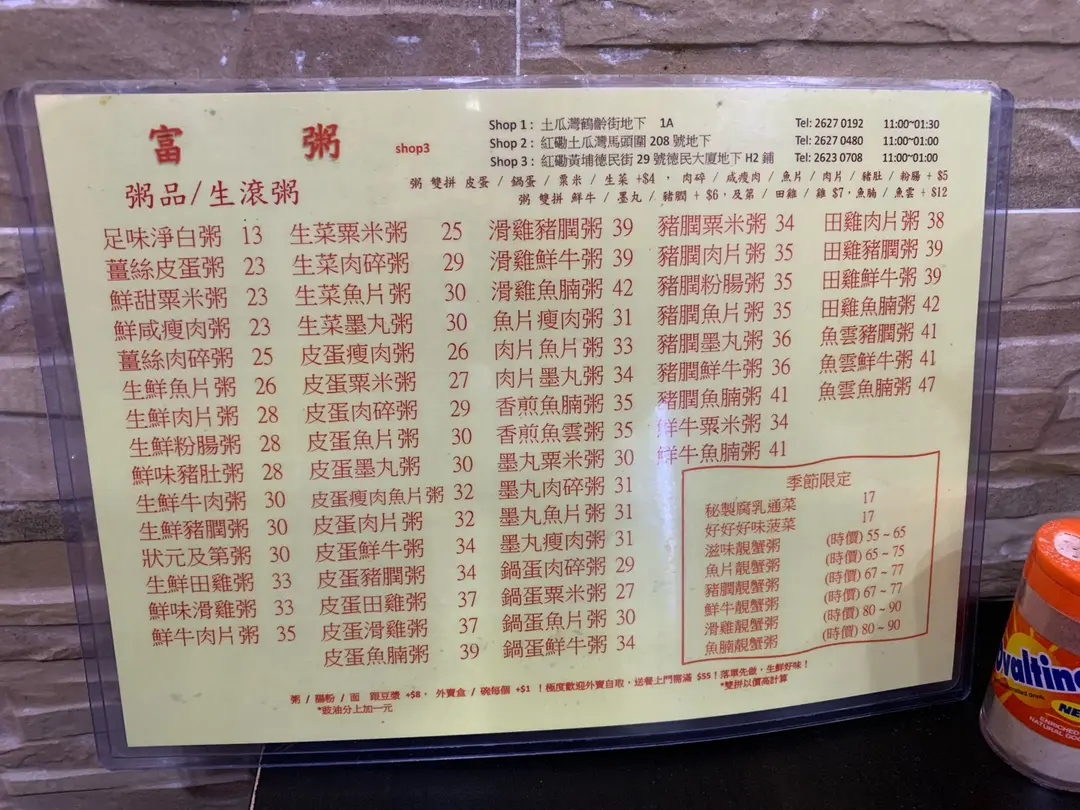 富 粥 shop3
Shop 1 : 土瓜灣鶴齡街地下 1A Tel: 2627 0192 11:00~01:30
Shop 2 : 紅磡土瓜灣馬頭圍 208 號地下 Tel: 2627 0480 11:00~01:00
Shop 3 : 紅磡黃埔德民街 29 號德民大廈地下 H2 鋪 Tel: 2623 0708 11:00~01:00
粥品/生滾粥
粥 雙拼 皮蛋 / 鍋蛋 / 粟米 / 生菜 +$4 , 肉碎 / 咸瘦肉 / 魚片 / 肉片 / 豬肚 / 粉腸 + $5
粥 雙拼 鮮牛 / 墨丸 / 豬膶 + $6,及第 / 田雞 / 雞 $7,魚腩 / 魚雲 + $12
足味淨白粥 13
薑絲皮蛋粥 23
鮮甜粟米粥 23
鮮咸瘦肉粥 23
薑絲肉碎粥 25
生鮮魚片粥 26
生鮮肉片粥 28
生鮮粉腸粥 28
鮮味豬肚粥 28
生鮮牛肉粥 30
生鮮豬膶粥 30
狀元及第粥 30
生鮮田雞粥 33
鮮味滑雞粥 33
鮮牛肉片粥 35
生菜粟米粥 25
生菜肉碎粥 29
生菜魚片粥 30
生菜墨丸粥 30
皮蛋瘦肉粥 26
皮蛋粟米粥 27
皮蛋肉碎粥 29
皮蛋魚片粥 30
皮蛋墨丸粥 30
皮蛋瘦肉魚片粥 32
皮蛋肉片粥 32
皮蛋鮮牛粥 34
皮蛋豬膶粥 34
皮蛋田雞粥 37
皮蛋滑雞粥 37
皮蛋魚腩粥 39
滑雞豬膶粥 39
滑雞鮮牛粥 39
滑雞魚腩粥 42
魚片瘦肉粥 31
肉片魚片粥 33
肉片墨丸粥 34
香煎魚腩粥 35
香煎魚雲粥 35
墨丸粟米粥 30
墨丸肉碎粥 31
墨丸魚片粥 31
墨丸瘦肉粥 31
鍋蛋肉碎粥 29
鍋蛋粟米粥 27
鍋蛋魚片粥 30
鍋蛋鮮牛粥 34
豬膶粟米粥 34
豬膶肉片粥 35
豬膶粉腸粥 35
豬膶魚片粥 35
豬膶墨丸粥 36
豬膶鮮牛粥 36
豬膶魚腩粥 41
鮮牛粟米粥 34
鮮牛魚腩粥 41
田雞肉片粥 38
田雞豬膶粥 39
田雞鮮牛粥 39
田雞魚腩粥 42
魚雲豬膶粥 41
魚雲鮮牛粥 41
魚雲魚腩粥 47
季節限定
秘製腐乳通菜 17
好好好味菠菜 17
滋味靚蟹粥 (時價) 55 ~ 65
魚片靚蟹粥 (時價) 65 ~ 75
豬膶靚蟹粥 (時價) 67 ~ 77
鮮牛靚蟹粥 (時價) 67 ~ 77
滑雞靚蟹粥 (時價) 80 ~ 90
魚腩靚蟹粥 (時價) 80 ~ 90
粥 / 腸粉 / 面 跟豆漿 +$8, 外賣盒 / 碗每個 +$1 !極度歡迎外賣自取,送餐上門需滿 $55!落單先做,生鮮好味!
*豉油分上加一元 *雙拼以價高計算
Ovaltine
NE
ENRICHED
NATURAL GOO